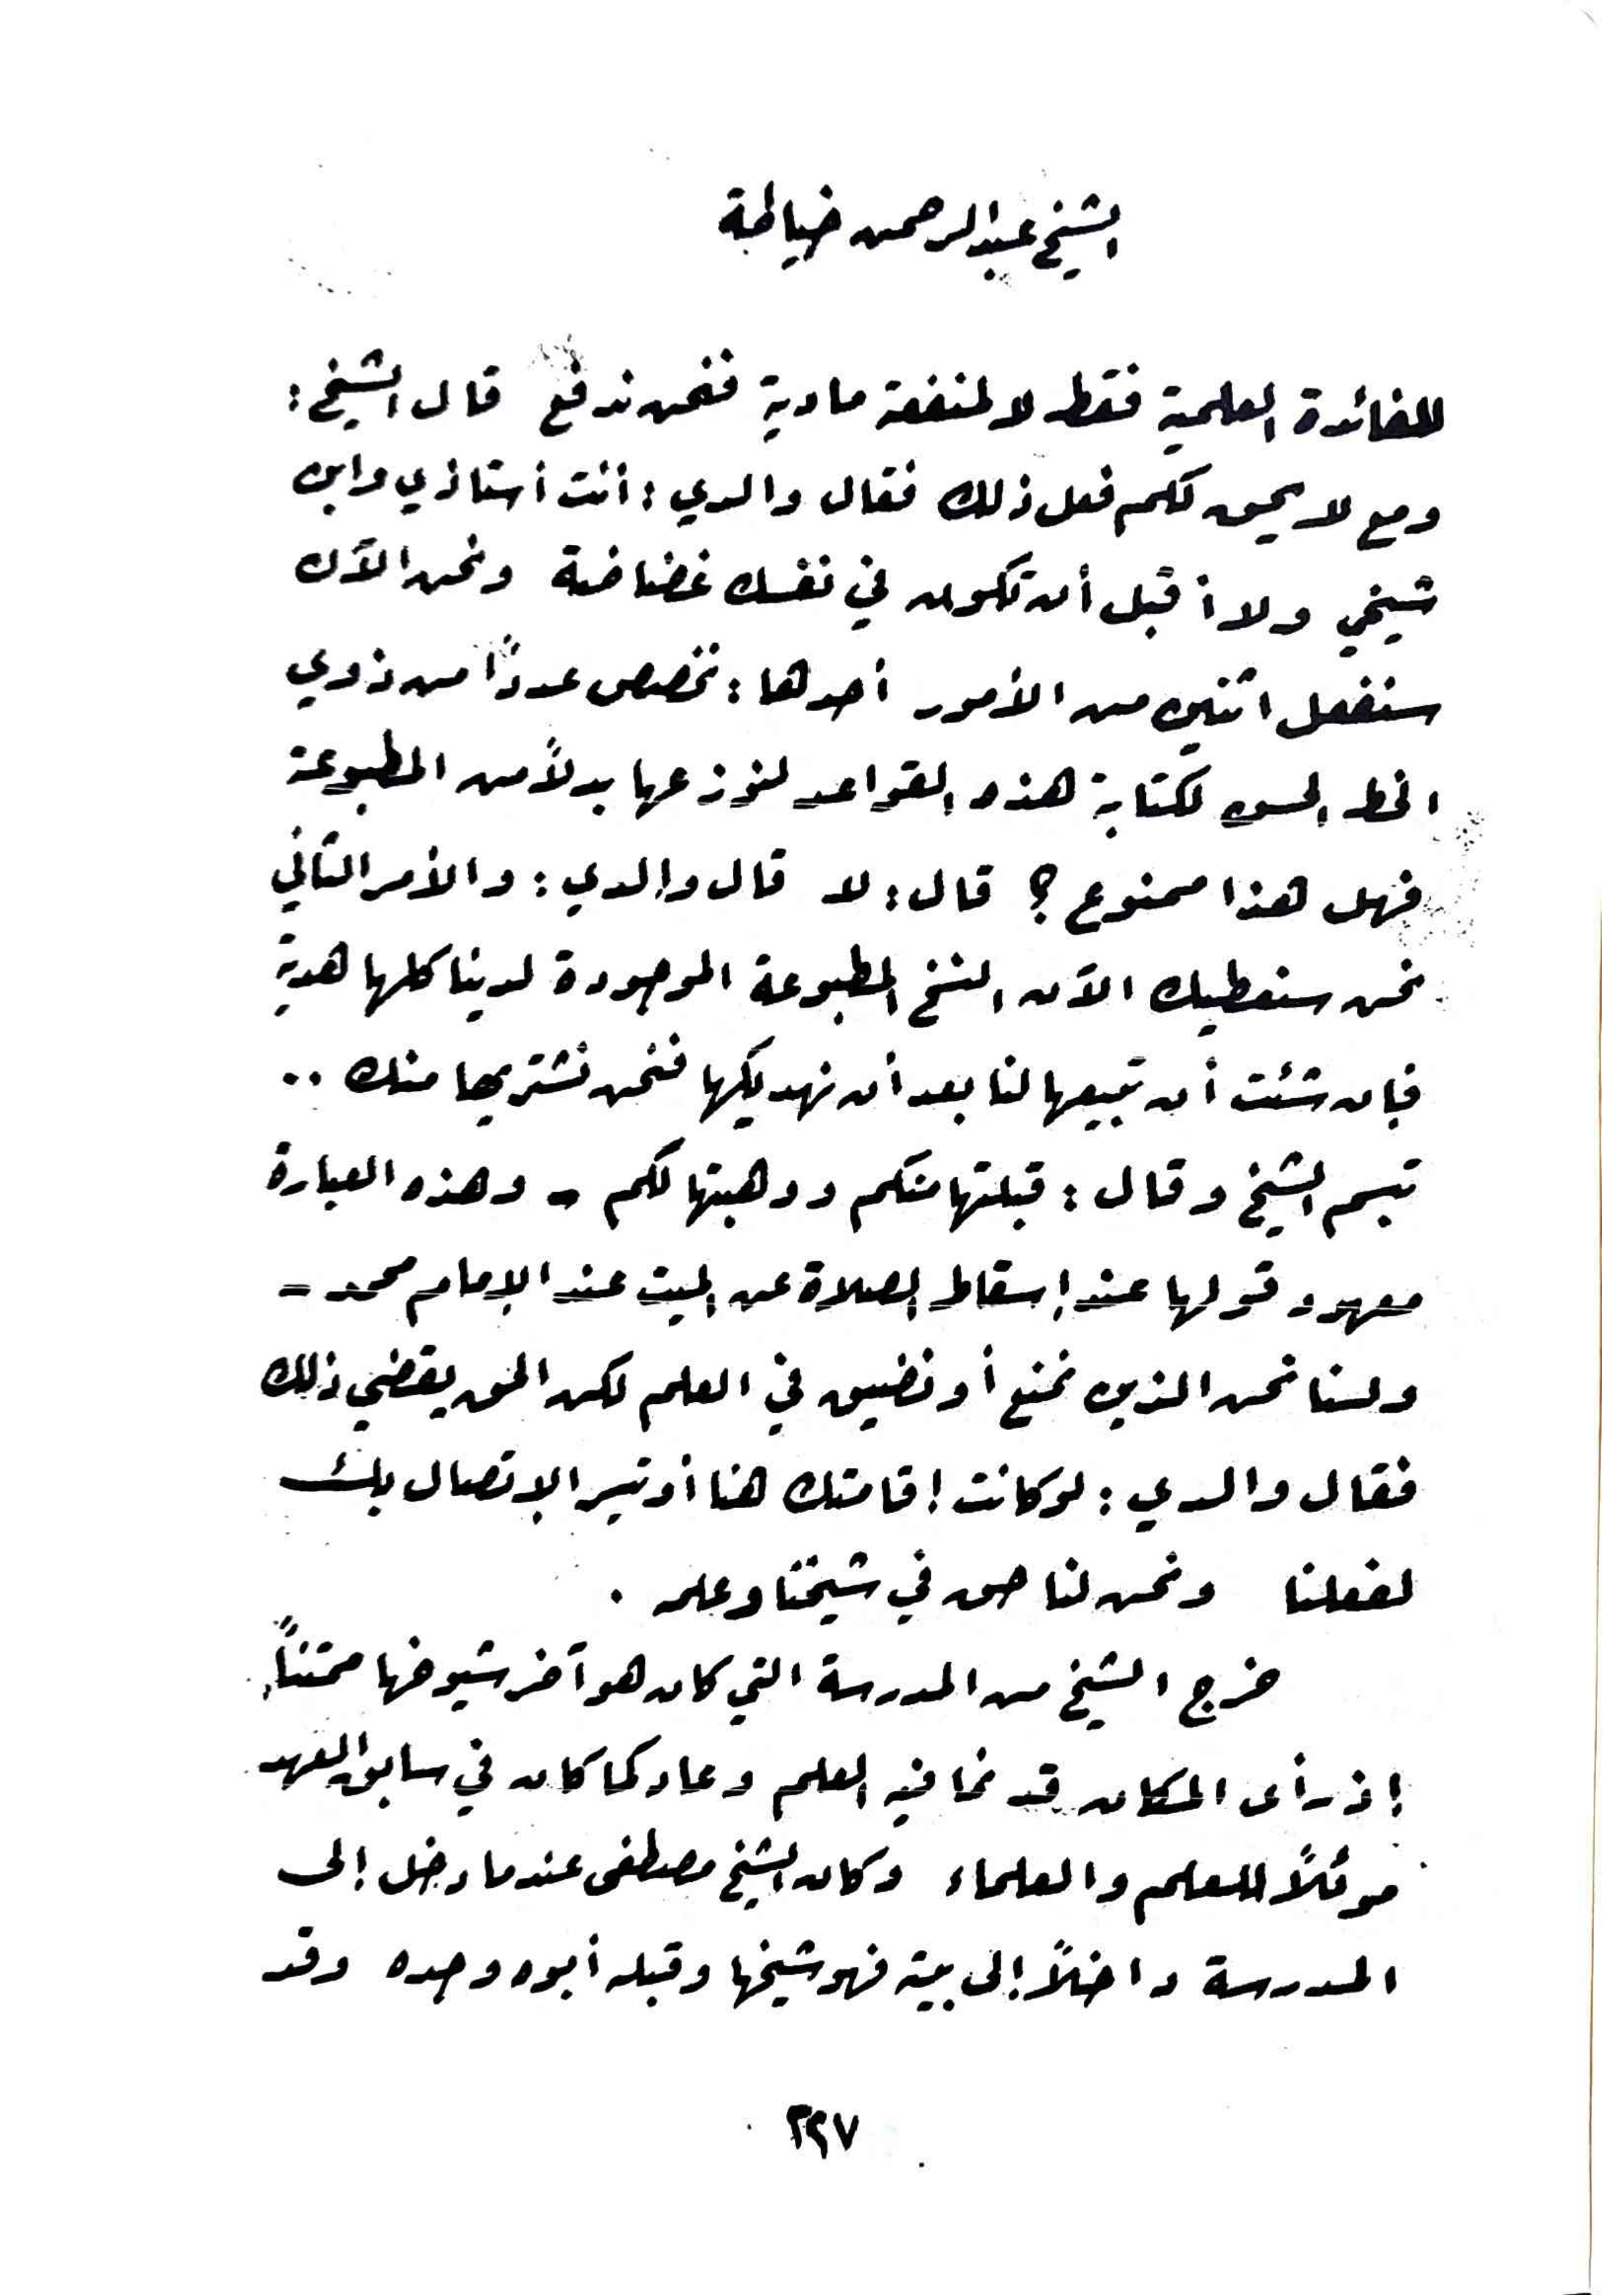 الشيخ عبدالرحمن خياطة
للفائدة العلمية فقط لا لمنفعة مادية فنحن ندفع قال الشيخ :
ومع لا يحق لكم فعل ذلك فقال والدي : أنت أستاذي وابن
شيخي ولا أقبل أن تكون في نفسك غضاضة ونحن الآن
سنفعل اثنين من الأمور أحدها : نخصص عدداً من ذوي
الخط الحسن لكتابة هذه القواعد لنوزعها بدلاً من المطبوعة
فهل هذا ممنوع ؟ قال : لا قال والدي : والأمر الثاني
نحن سنعطيك الآن النسخ المطبوعة الموجودة لدينا كلها هدية
فإن شئت أن تبيعها لنا بعد أن نهديكها فنحن نشتريها منك ..
تبسم الشيخ وقال : قبلتها منكم ووهبتها لكم - وهذه العبارة
معهود قولها عند إسقاط الصلاة عن الميت عند الإمام محمد -
ولسنا نحن الذين نمنع أو نضيق في العلم لكن الحق يقضي ذلك
فقال والدي : لو كانت إقامتك هنا أو تيسر الإتصال بك
لفعلنا ونحن لنا حق في شيخنا وعلمه .
خرج الشيخ من المدرسة التي كان هو آخر شيوخها ممتناً
إذ رأى المكان قد نما فيه العلم وعاد كما كان في سابق العهد
موئلاً للعلم والعلماء وكان الشيخ مصطفى عندما دخل إلى
المدرسة داخلاً إلى بيته فهو شيخها وقبله أبوه وجده وقد
٢٢٧